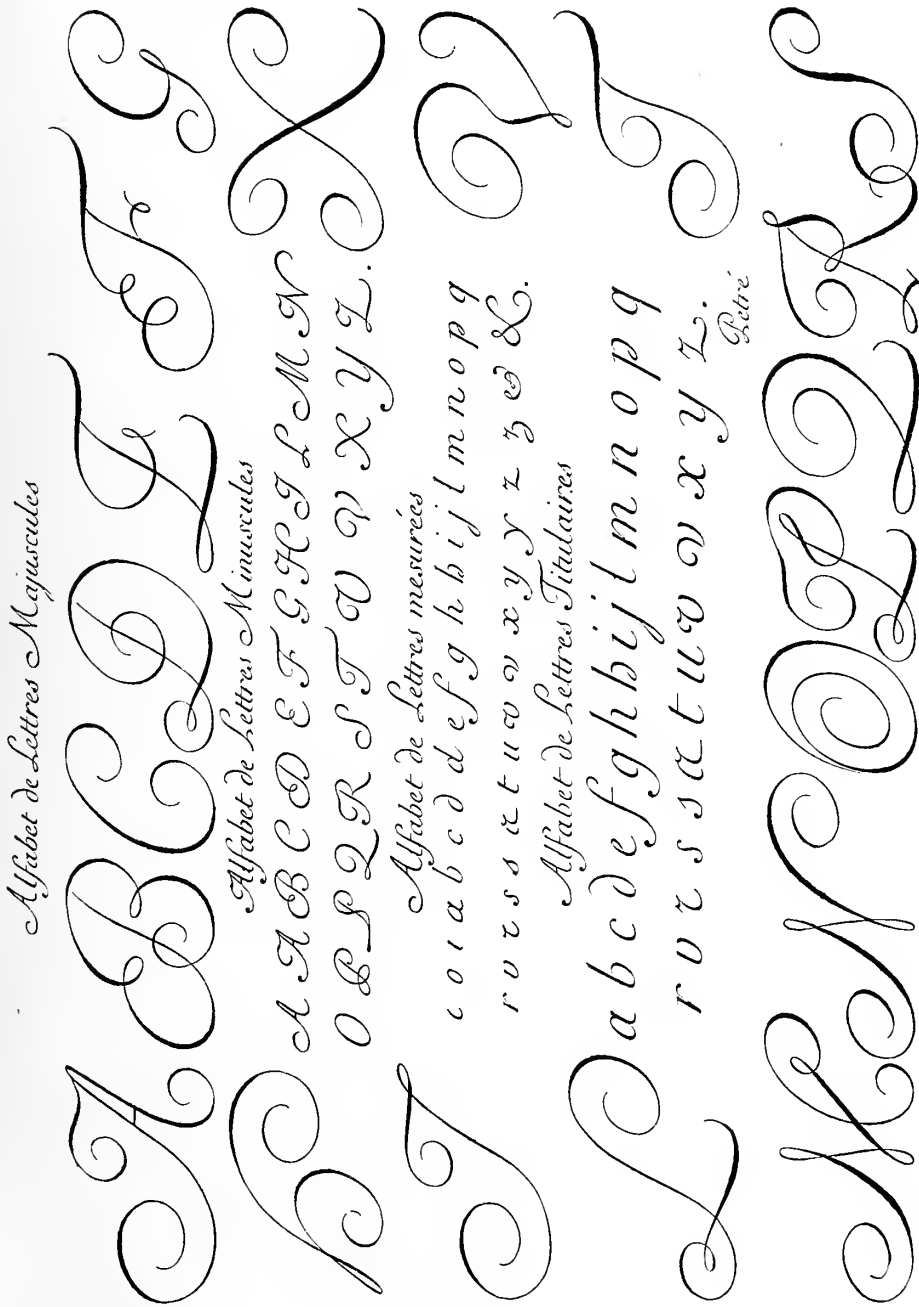 Alfabet de Lettres Majuscules
A B C D E F G
H X
Alfabet de Lettres Minuscules
A A B C D E F G H I L M N
O P P Q R S T V V X Y Z.
I V
Alfabet de Lettres mesurées
c o ı a b c d d e f g h h i j l m n o p q
r v r s s ct t u v v x y y z z & &.
Alfabet de Lettres Titulaires
L T
a b c d e f g h h i j l m n o p q
r v r s s ct t u v v x y z.
Petré
M N O P Q R S